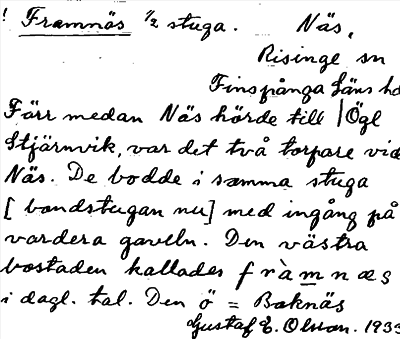 ! Framnäs ½ stuga. Näs,
Risinge sn
Finspånga läns hd
Färr medan Näs hörde till | Ögl
Stjärnvik, var det två torpare vid
Näs. De bodde i samma stuga
[bondstugan nu] med ingång på
vardera gaveln. Den västra
bostaden kallades fràmnæs
i dagl. tal. Den ö = Baknäs
Gustaf E. Olsson. 1933